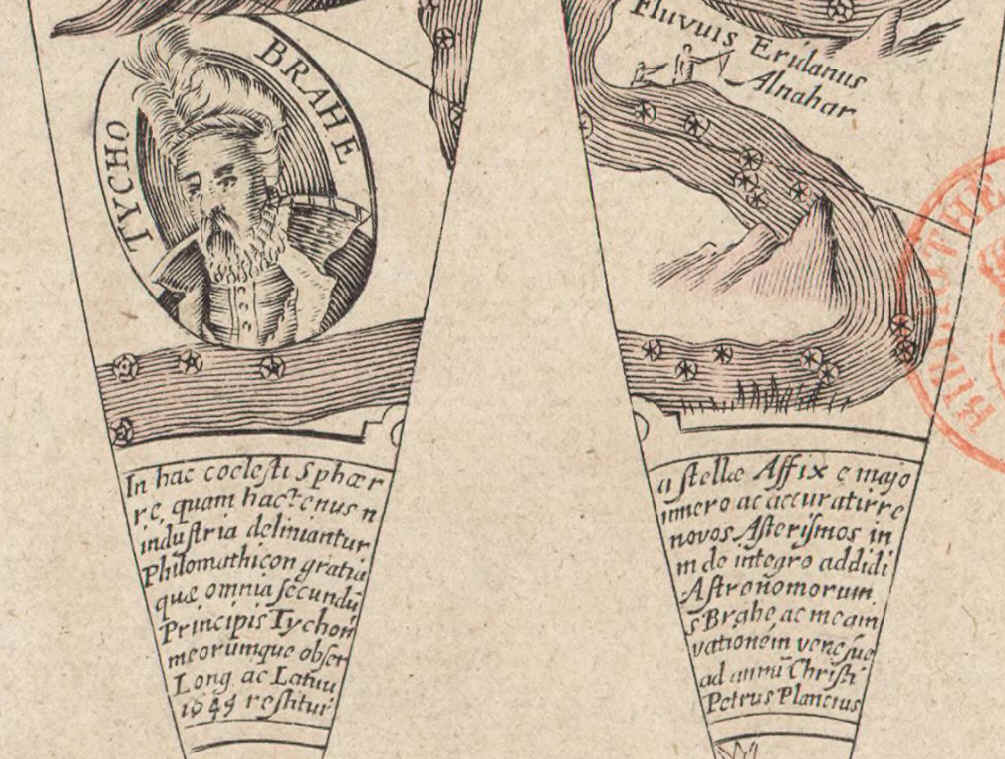 TYCHO BRAHE
Fluvuis Eridanus
Alnahar
In hac coelesti Sphær
re, quam hactenus n
industria deliniantur
Philomathicon gratia
quæ omnia secundū
Principis Tychon
meorumque obser
Long ac Latitu
restitui
a stellæ Affixe majo
imero ac accuratirre
novos Asterismos in
m de integro addidi
Astronomorum
s Brahe, ac meam
vationem
ad annū Christi
Petrus Plancius